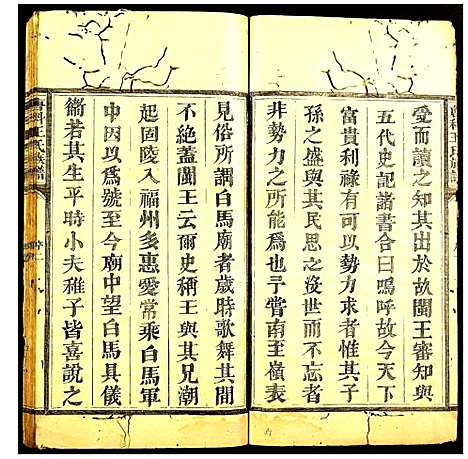 愛而讀之知其出於故閩王審知與
五代史記諸書合曰嗚呼故今天下
富貴利祿有可以勢力求者惟其子
孫之盛與其民思之沒世而不忘者
非勢力之所能爲也予嘗南至嶺表
見俗所謂白馬廟者歲時歌舞其間
不絕蓋閩王云爾史稱王與其兄潮
起固陵入福州多惠愛常乘白馬軍
中因以爲號至今廟中望白馬具儀
衞若其生平時小夫稚子皆喜說之
王氏族譜
序二